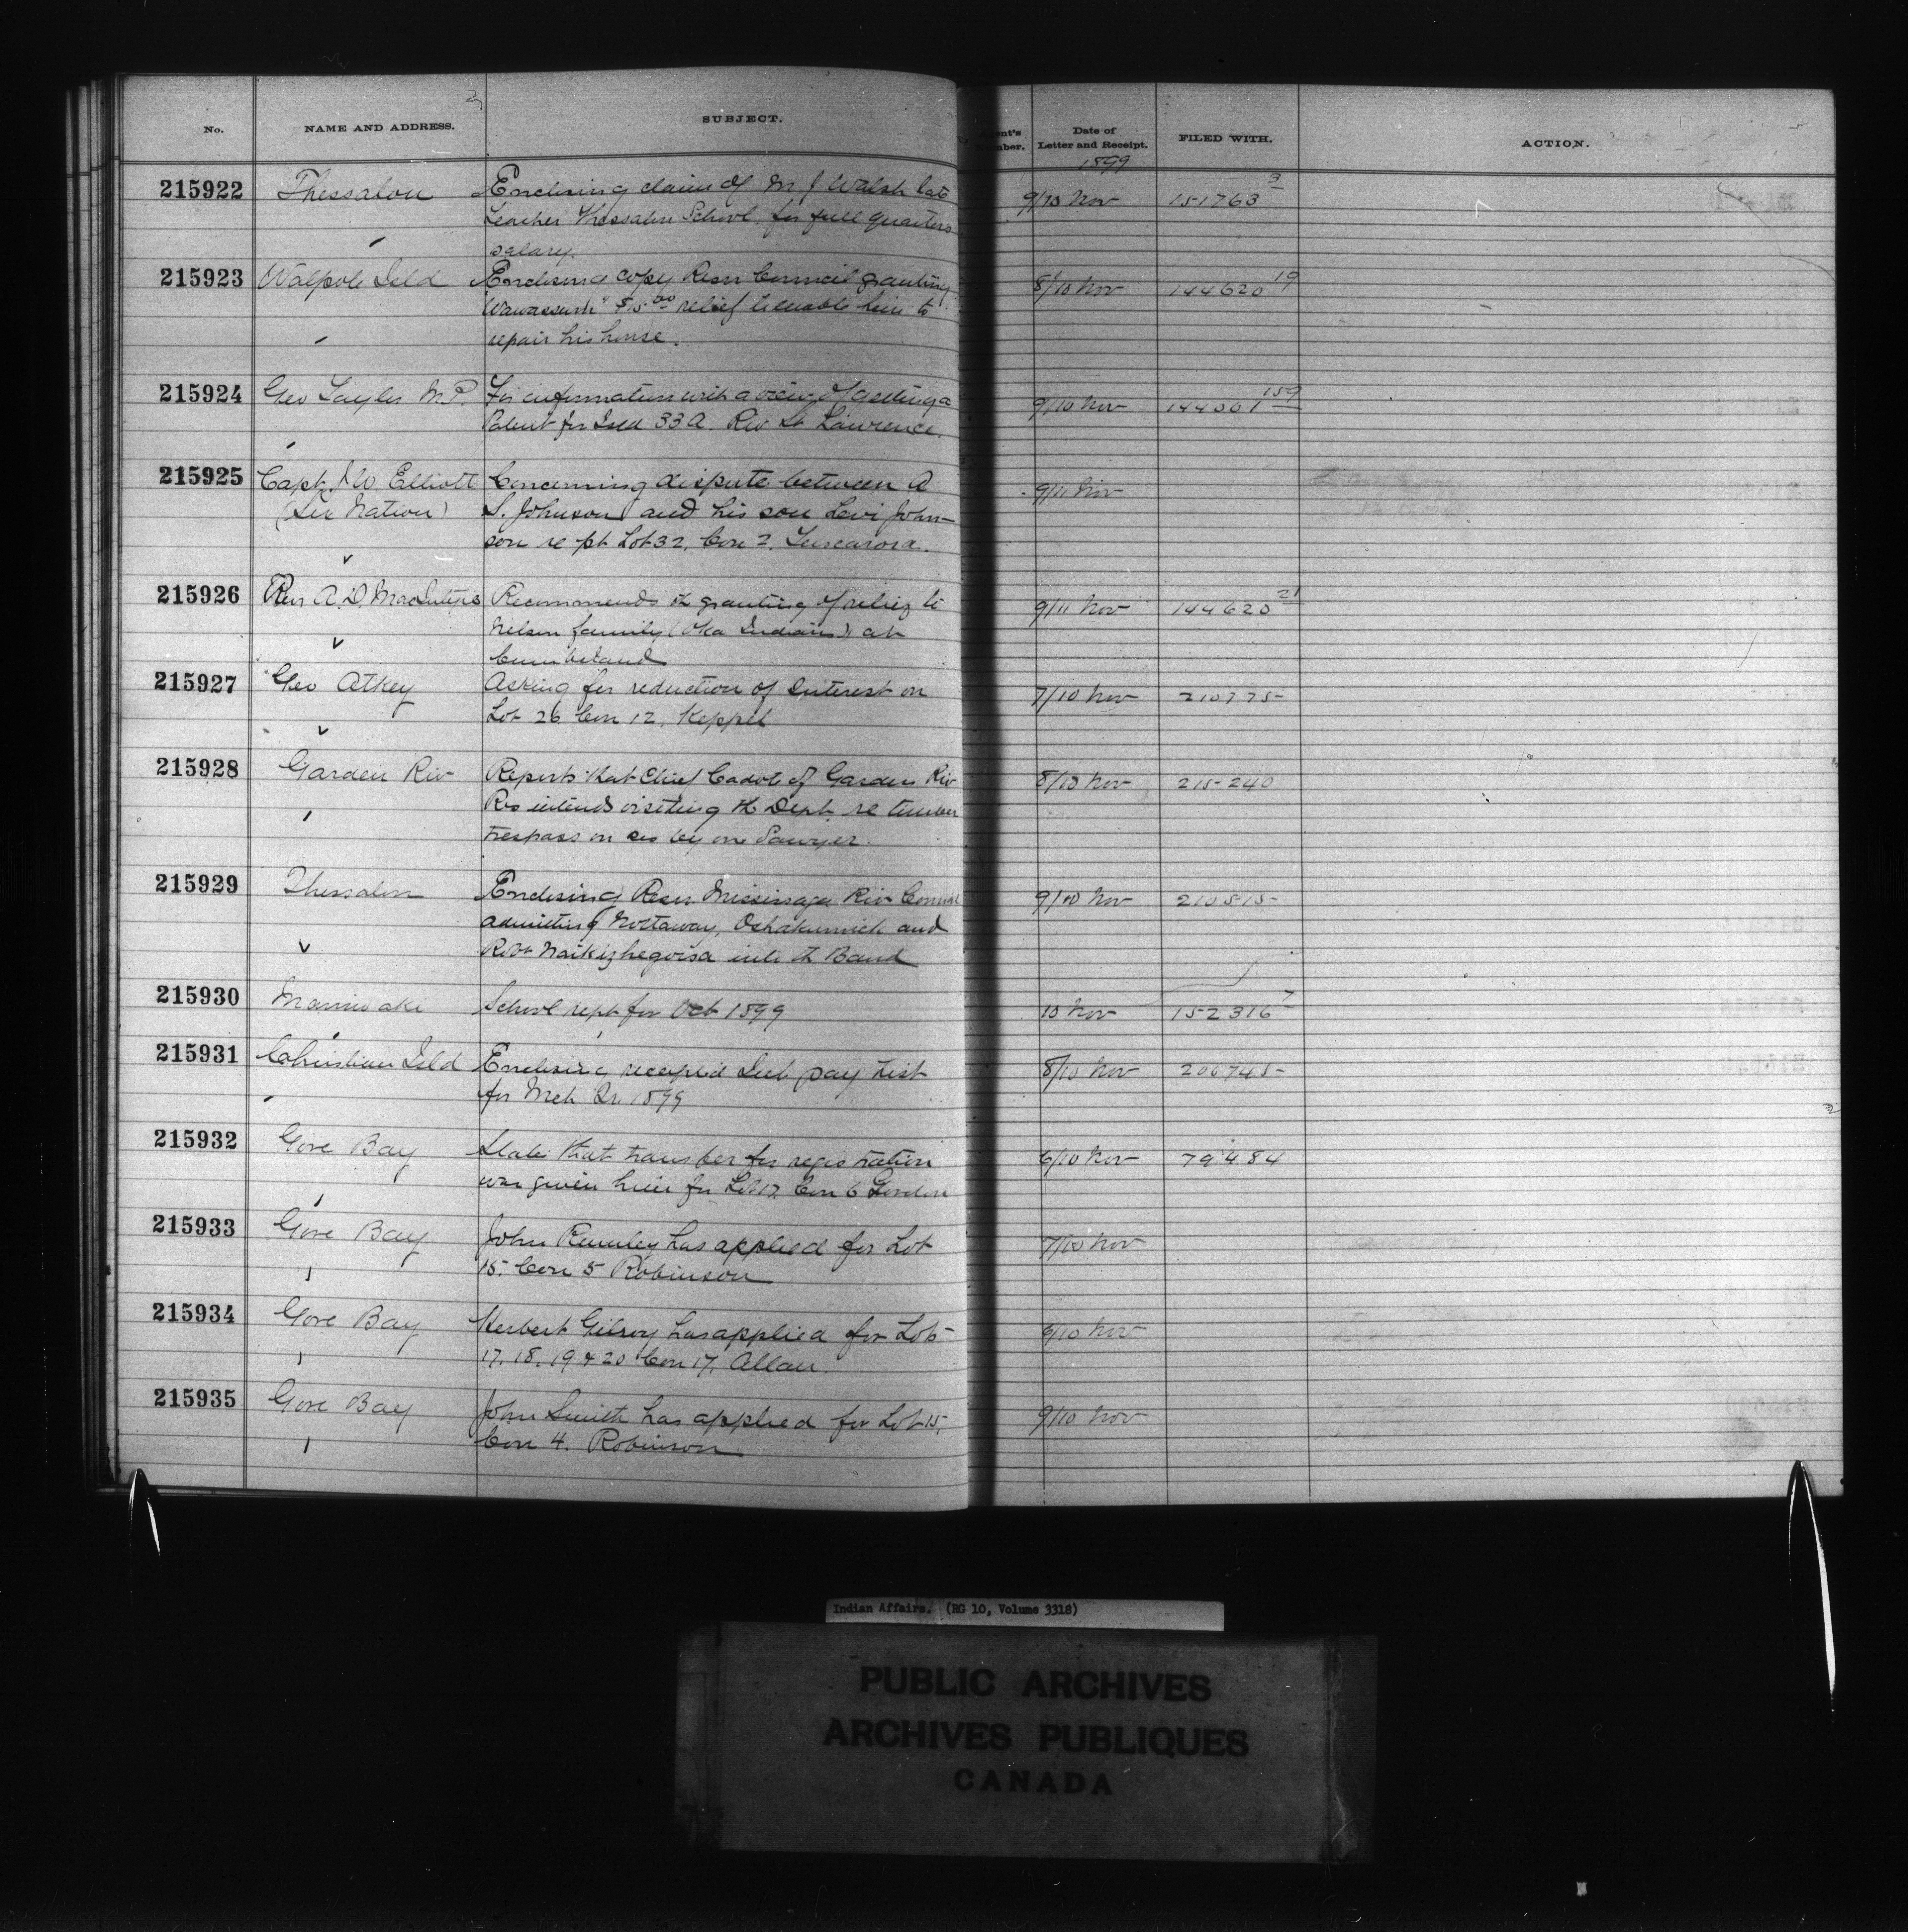 No. NAME AND ADDRESS. SUBJECT. Date of Letter and Receipt. FILED WITH. ACTION.
1899
215922 Thessalon Enclosing claim of M J Walsh late 9/10 Nov 151763 3
teacher Thessalon School, for full quarters
salary.
215923 Walpole Isld Enclosing copy Resn Council granting 8/10 Nov 144620 19
$15.00 relief to enable him to
repair his house.
215924 Geo Taylor M.P. For information with a view of getting a 9/10 Nov 159
Patent for Isld 33A. Riv St Lawrence.
215925 Capt. J W. Elliott Concerning dispute between A 9/11 Nov
(Six Nation) S. Johnson and his son Levi John-
son re pt Lot 32, Con 2, Tuscarora.
215926 Rev A. D. MacIntyre Recommends the granting of relief to 9/11 Nov 144620 21
Nelson family (Oka Indians) at
Cumberland
215927 Geo Atkey Asking for reduction of Interest on 7/10 Nov 210775
Lot 26 Con 12, Keppel
215928 Garden Riv Reports that Chief Cadot of Garden Riv 8/10 Nov 215240
Res intends visiting the Dept. re timber
trespass on res by one Sawyer.
215929 Thessalon Enclosing Resn Mississaga Riv Council 9/10 Nov 210515
admitting Nottaway, Oshakumick and
Robt Naikizhegoisa into the Band
215930 Maniwaki School rept for Oct 1899 10 Nov 152316 7
215931 Christian Isld Enclosing receipted Int pay list 8/10 Nov 206745
for Mch Qr 1899
215932 Gore Bay States that transfer for registration 6/10 Nov 79484
was given him for Lot 17 Con 6 Gordon
215933 Gore Bay John Rumley has applied for Lot 7/10 Nov
15. Con 5 Robinson
215934 Gore Bay Herbert Gilroy has applied for Lots /10 Nov
17, 18, 19 & 20 Con 17, Allan.
215935 Gore Bay John Smith has applied for Lot 15, 9/10 Nov
Con 4. Robinson
Indian Affairs. (RG 10, Volume 3318)
PUBLIC ARCHIVES
ARCHIVES PUBLIQUES
CANADA